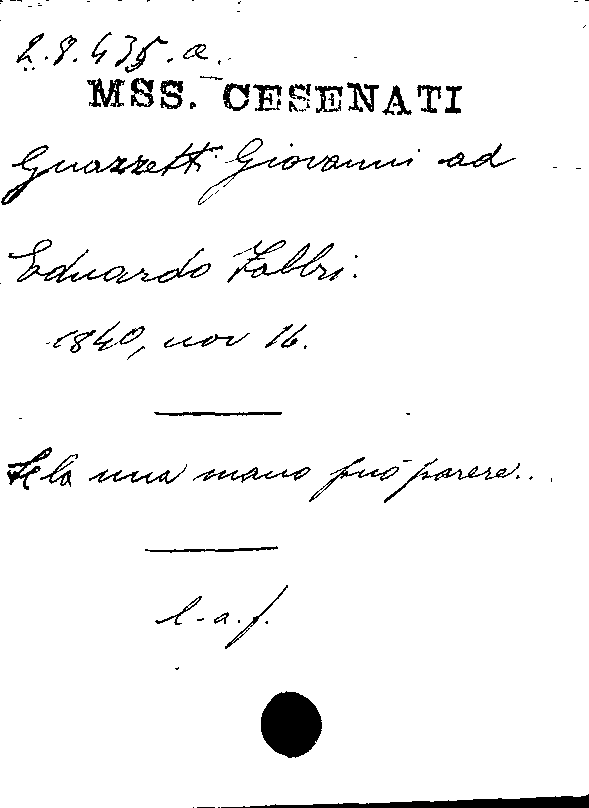 2.8.435.a.
MSS. CESENATI
Guazzetti Giovanni ad
Eduardo Fabbri.
1840, nov 16.
Se la una mano può parere...
l-a.f.